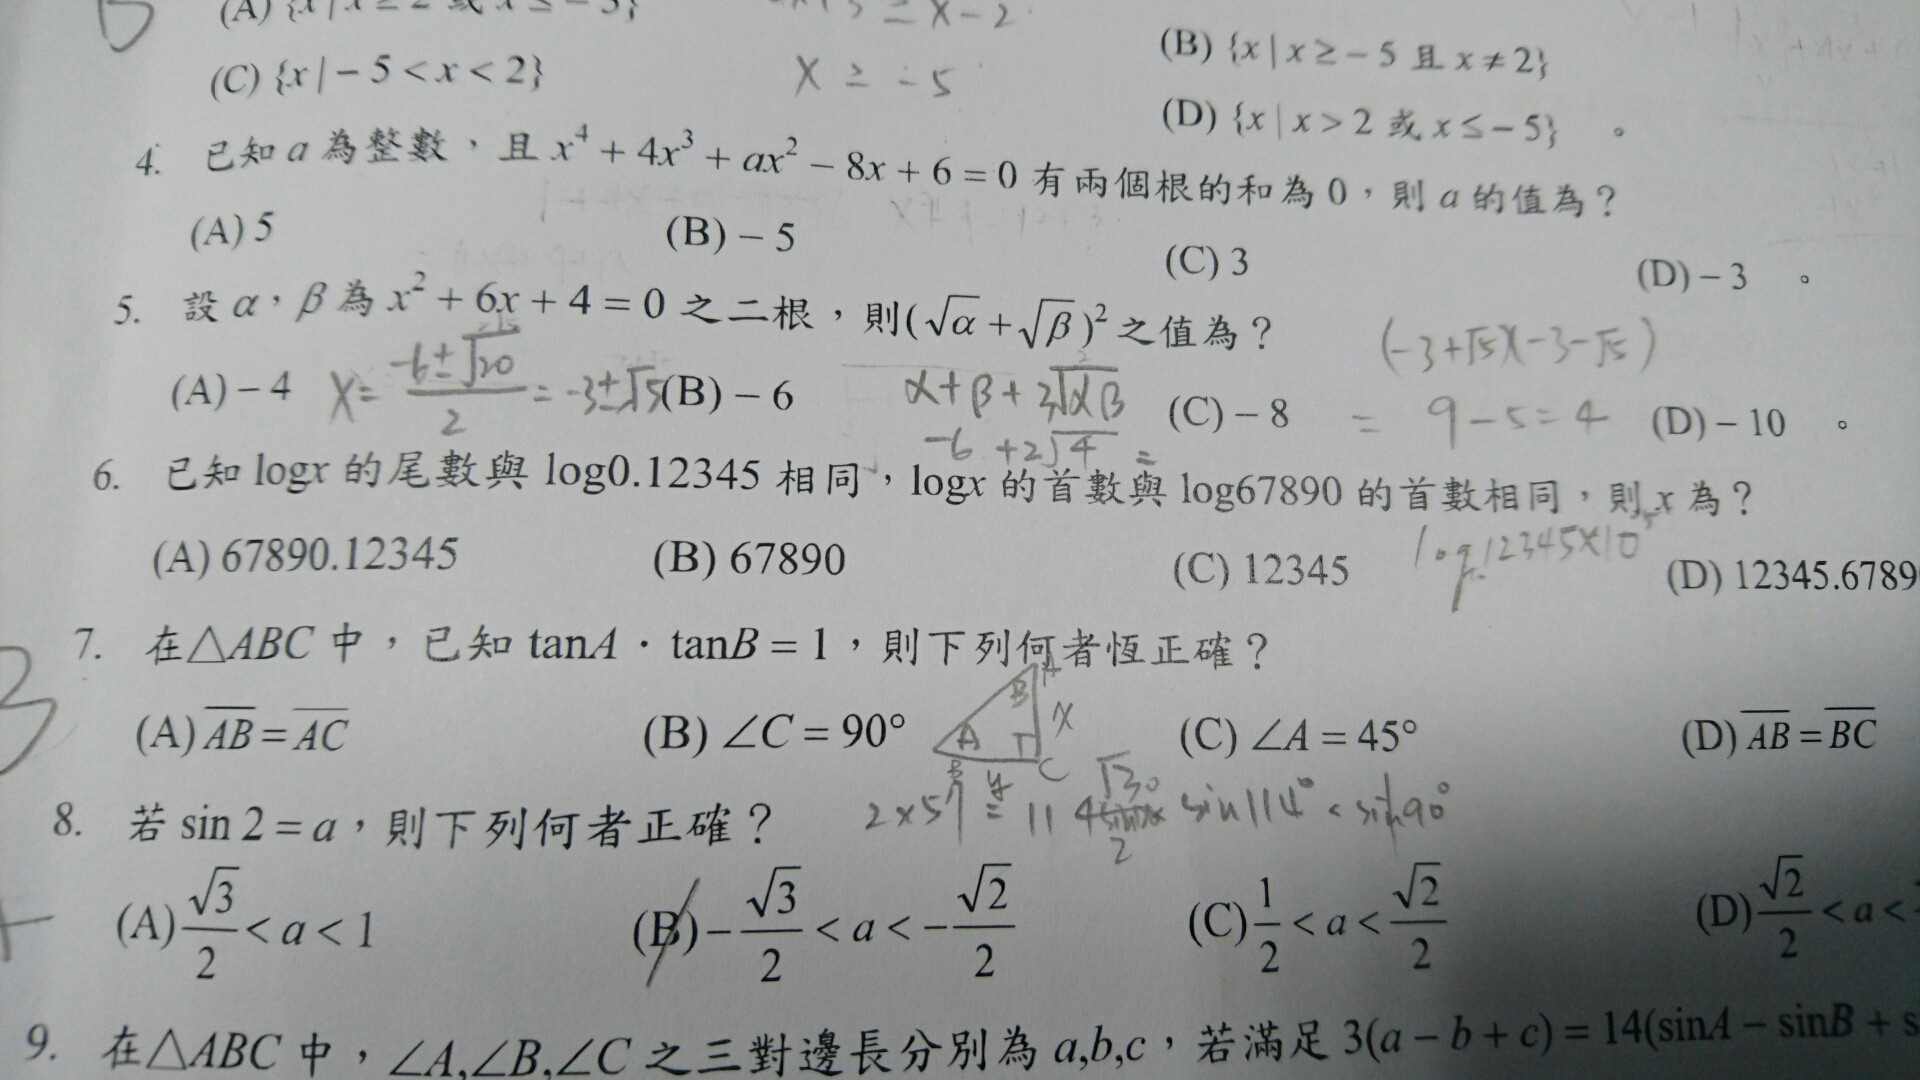 (C) {x | – 5 < x < 2}
x ≥ -5
(B) {x | x ≥ – 5 且 x ≠ 2}
(D) {x | x > 2 或 x ≤ – 5} 。
4. 已知 a 為整數,且 x⁴ + 4x³ + ax² – 8x + 6 = 0 有兩個根的和為 0,則 a 的值為?
(A) 5 (B) – 5 (C) 3 (D) – 3 。
5. 設 α,β 為 x² + 6x + 4 = 0 之二根,則(√α + √β)² 之值為?
(-3+√5)(-3-√5)
(A) – 4 (B) – 6 (C) – 8 (D) – 10 。
x = (-6±√20)/2 = -3±√5
α+β+2√αβ
= 9-5=4
-6 +2√4 =
6. 已知 logx 的尾數與 log0.12345 相同,logx 的首數與 log67890 的首數相同,則 x 為?
(A) 67890.12345 (B) 67890 (C) 12345 (D) 12345.6789
log.12345×10⁵
7. 在△ABC 中,已知 tanA · tanB = 1,則下列何者恆正確?
(A) AB = AC (B) ∠C = 90° (C) ∠A = 45° (D) AB = BC
A
B
x
A
C
y
8. 若 sin 2 = a,則下列何者正確?
2×57 = 114 sin114° < sin90°
(A) √3/2 < a < 1 (B) –√3/2 < a < –√2/2 (C) 1/2 < a < √2/2 (D) √2/2 < a <
9. 在△ABC 中,∠A,∠B,∠C 之三對邊長分別為 a,b,c,若滿足 3(a – b + c) = 14(sinA – sinB + s